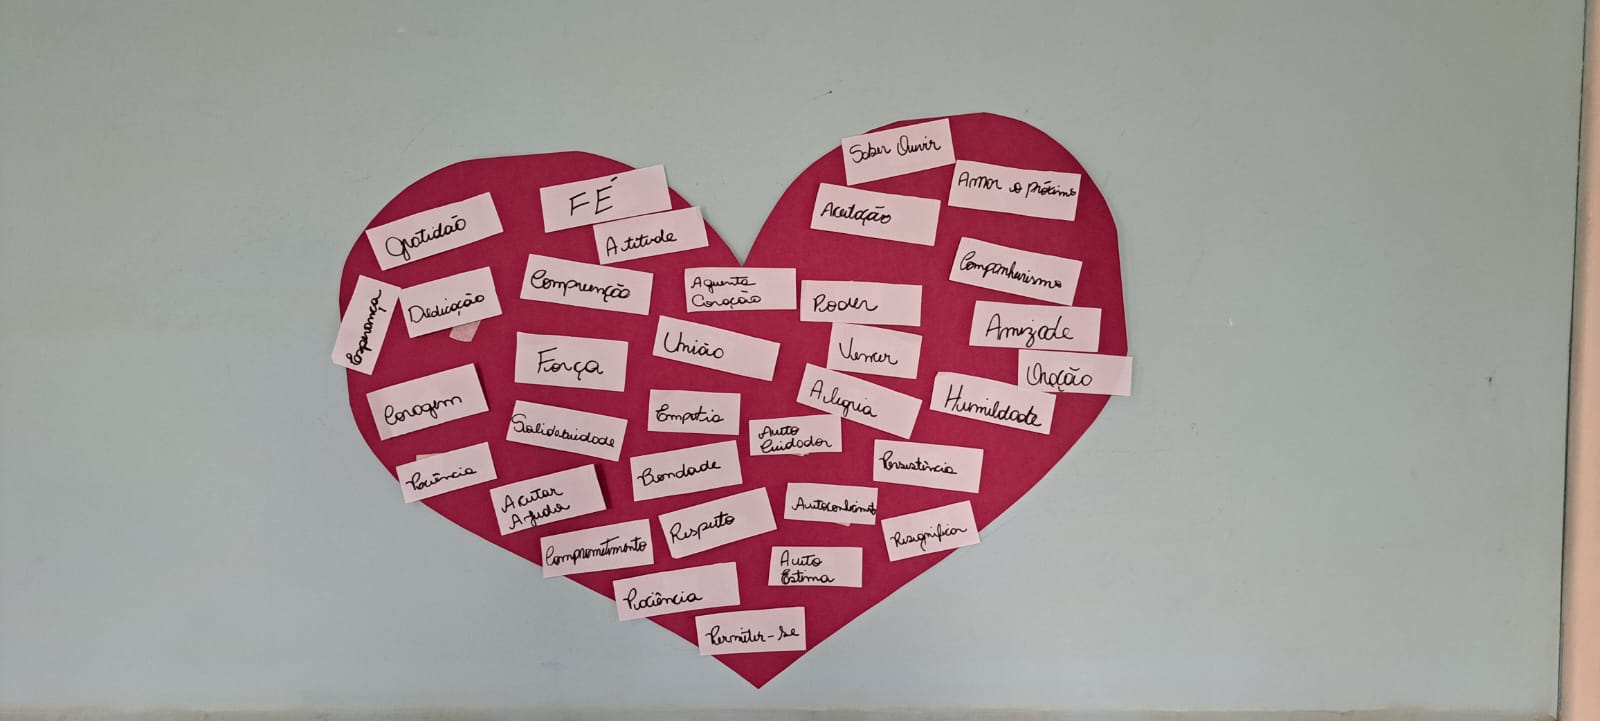 Saber Ouvir
Amor o próximo
FÉ
Aceitação
Gratidão
Atitude
Companherismo
Compreenção
Aguenta
Coração
Poder
Dedicação
Esperança
Amizade
União
Vencer
Força
Oração
Alegria
Humildade
Coragem
Empatia
Solidariedade
Auto
Cuidador
Persistência
Paciência
Bondade
Aceitar
Ajuda
Autoconhecimento
Respeito
Resignificar
Comprometimento
Auto
Estima
Paciência
Permiter-se